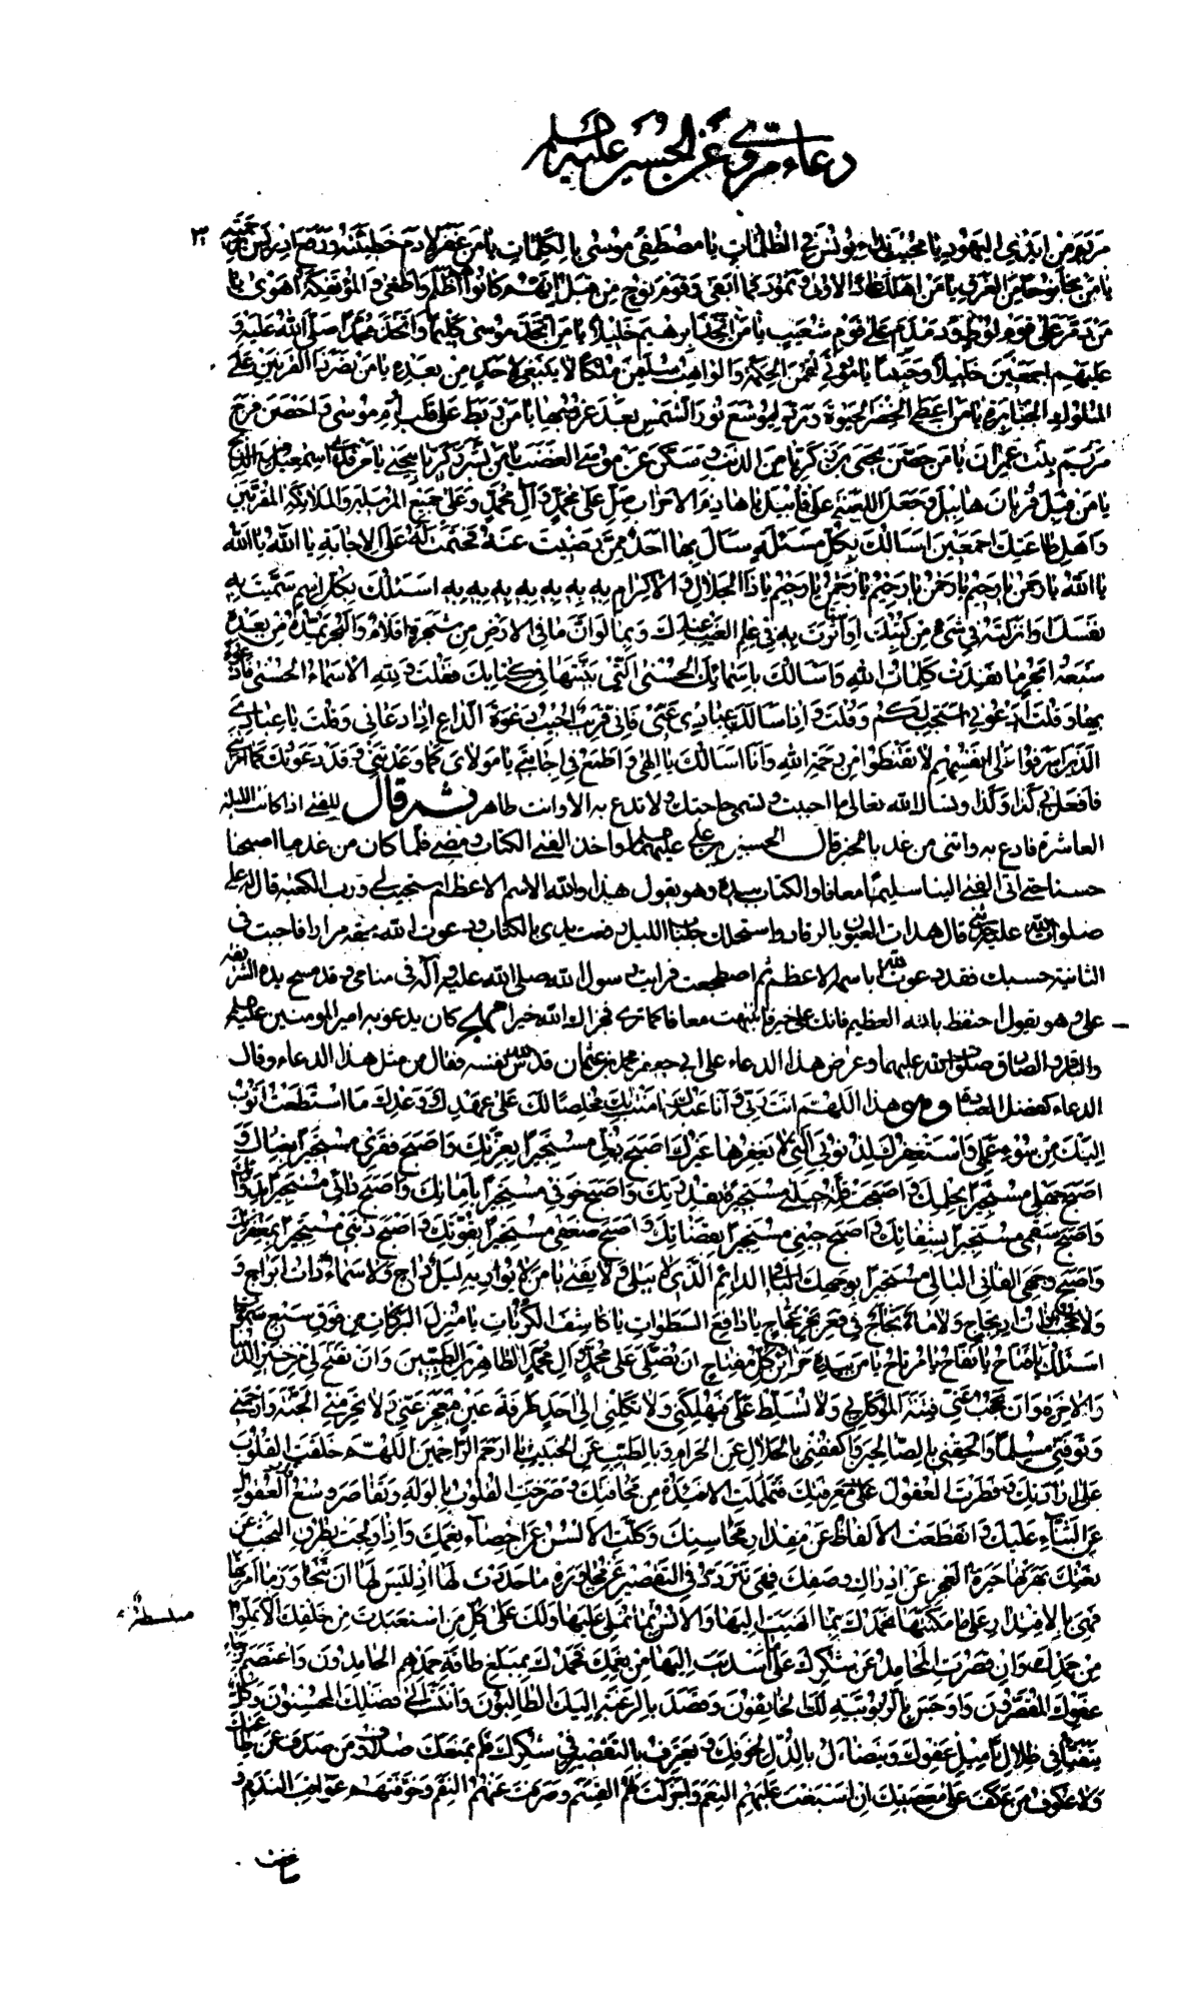 دعاء مروي عن الحسين عليه السلم
٣
مريم من ايدي اليهود يا مجيب نداء يونس في الظلمات يا مصطفي موسى بالكلمات يا من غفر لادم خطيئته ورفع ادريس برحمته
يا من نجا نوحا من الغرق يا من اهلك عاد الاولى وثمود فما ابقى وقوم نوح من قبل انهم كانوا هم اظلم واطغى والمؤتفكة اهوى يا
من دمر على قوم لوط ودمدم على قوم شعيب يا من اتخذ ابرهيم خليلا يا من اتخذ موسى كليما واتخذ محمدا صلى الله عليه و
عليهم اجمعين حبيبا يا مؤتي لقمن الحكمة والواهب سليمن ملكا لا ينبغي لاحد من بعده يا من نصر ذا القرنين على
الملوك الجبابرة يا من اعطى الخضر الحيوة ورد ليوشع نور الشمس بعد غروبها يا من ربط على قلب ام موسى واحصن فرج
مريم بنت عمران يا من حصن يحيى بن زكريا من الذنب وسكن عن موسى الغضب يا من بشر زكريا بيحيى يا من فدا اسمعيل من الذبح
يا من قبل قربان هابيل وجعل اللعنة على قابيل يا هازم الاحزاب صل على محمد وآل محمد وعلى جميع المرسلين والملائكة المقربين
واهل طاعتك اجمعين اسالك بكل مسئلة سالك بها احد ممن رضيت عنه فحتمت له على الاجابة يا الله يا الله
يا الله يا رحمن يا رحيم يا رحمن يا رحيم يا رحمن يا رحيم يا ذا الجلال والاكرام به به به به به به به اسئلك بكل اسم سميت به
نفسك او انزلته في شيء من كتبك او استأثرت به في علم الغيب عندك وبما لو ان ما في الارض من شجرة اقلام والبحر يمده من بعده
سبعة ابحر ما نفدت كلمات الله واسالك باسمائك الحسنى التي بينتها في كتابك فقلت ولله الاسماء الحسنى فادعوه
بها وقلت ادعوني استجب لكم وقلت واذا سالك عبادي عني فاني قريب اجيب دعوة الداع اذا دعاني وقلت يا عبادي
الذين اسرفوا على انفسهم لا تقنطوا من رحمة الله وانا اسالك يا الهي واطمع في اجابتي يا مولاي كما وعدتني وقد دعوتك كما امرتني
فافعل بي كذا وكذا وتسال الله تعالى ما احببت وتسمي حاجتك ولا تدع به الا وانت طاهر ثم قال للفتى اذا كانت الليلة
العاشرة فادع به واتني من غد بالخبر قال الحسين بن علي عليهما السلم واخذ الفتى الكتاب ومضى فلما كان من غد ما اصبحنا
حسنا حتى اتى الفتى الينا سليما معافا والكتاب بيده وهو يقول هذا والله الاسم الاعظم استجيب لي ورب الكعبة قال له علي
صلوات الله عليه حدثني قال هدات العيون بالرقاد واستحلك جلباب الليل رفعت يدي بالكتاب ودعوت الله بحقه مرارا فاجبت في
الثانية حسبك فقد دعوت الله باسمه الاعظم ثم اضطجعت فرايت رسول الله صلى الله عليه وآله في منامي وقد مسح يده الشريفة
علي وهو يقول احتفظ بالله العظيم فانك على خير فانتبهت معافا كما ترى فجزاك الله خيرا كان يدعو به امير المومنين عليه السلم
والباقر والصادق صلوات الله عليهما وعرض هذا الدعاء على ابي جعفر محمد بن عثمان قدس الله نفسه فقال من مثل هذا الدعاء وقال
الدعاء كفضل العبادة وهو هذا اللهم انت ربي وانا عبدك امنت بك مخلصا لك على عهدك ووعدك ما استطعت اتوب
اليك من سوء عملي واستغفرك لذنوبي التي لا يغفرها غيرك اصبح ذلي مستجيرا بعزتك واصبح فقري مستجيرا بغناك و
اصبح جهلي مستجيرا بحلمك واصبحت قلة حيلتي مستجيرة بقدرتك واصبح خوفي مستجيرا بامانك واصبح دائي مستجيرا بدوائك
واصبح سقمي مستجيرا بشفائك واصبح حيني مستجيرا بقضائك واصبح ضعفي مستجيرا بقوتك واصبح ذنبي مستجيرا بمغفرتك
واصبح وجهي الفاني البالي مستجيرا بوجهك الباقي الدائم الذي لا يبلى ولا يفنى يا من لا يواريه ليل داج ولا سماء ذات ابراج و
ولا حجب ذات ارتجاج ولا ماء ثجاج في قعر بحر عجاج يا دافع السطوات يا كاشف الكربات يا منزل البركات من فوق سبع سموات
اسئلك يا فتاح يا نفاح يا مرتاح يا من بيده خزائن كل مفتاح ان تصلي على محمد وآل محمد الطاهرين الطيبين وان تفتح لي من خير الدنيا
والاخرة وان تحجب عني فتنة الموكل بي ولا تسلطه علي فيهلكني ولا تكلني الى احد طرفة عين فيعجز عني ولا تحرمني الجنة وارحمني
وتوفني مسلما والحقني بالصالحين واكففني بالحلال عن الحرام وبالطيب عن الخبيث يا ارحم الراحمين اللهم خلقت القلوب
على ارادتك وفطرت العقول على معرفتك فتململت الافئدة من مخافتك وصرخت القلوب بالوله وتقاصر وسع العقول
عن الثناء عليك وانقطعت الالفاظ عن مقدار محاسنك وكلت الالسن عن احصاء نعمك واذا ولجت بطرق البحث عن
نعتك بهرتها حيرة العجز عن ادراك وصفك فهي تتردد في التقصير عن مجاوزة ما حددت لها اذ ليس لها ان تتجاوز ما امرتها
فهي بالاقتدار على ما مكنتها تحمدك بما انهيت اليها والالسن منبسطة بما تملي عليها ولك على كل من استعبدت من خلقك الا يملوا
من حمدك وان قصرت المحامد عن شكرك على ما اسديت اليها من نعمك فحمدك بمبلغ طاقة حمدهم الحامدون واعتصم برجاء
عفوك المقصرون واوجس بالربوبية لك الخائفون وقصد بالرغبة اليك الطالبون وانتسب الى فضلك المحسنون وكل
يتفيأ في ظلال تأميل عفوك ويتضاءل بالذل لخوفك ويعترف بالتقصير في شكرك فلم يمنعك صدوف من صدف عن طاعتك
ولا عكوف من عكف على معصيتك ان اسبغت عليهم النعم واجزلت لهم القسم وصرفت عنهم النقم وخوفتهم عواقب الندم و